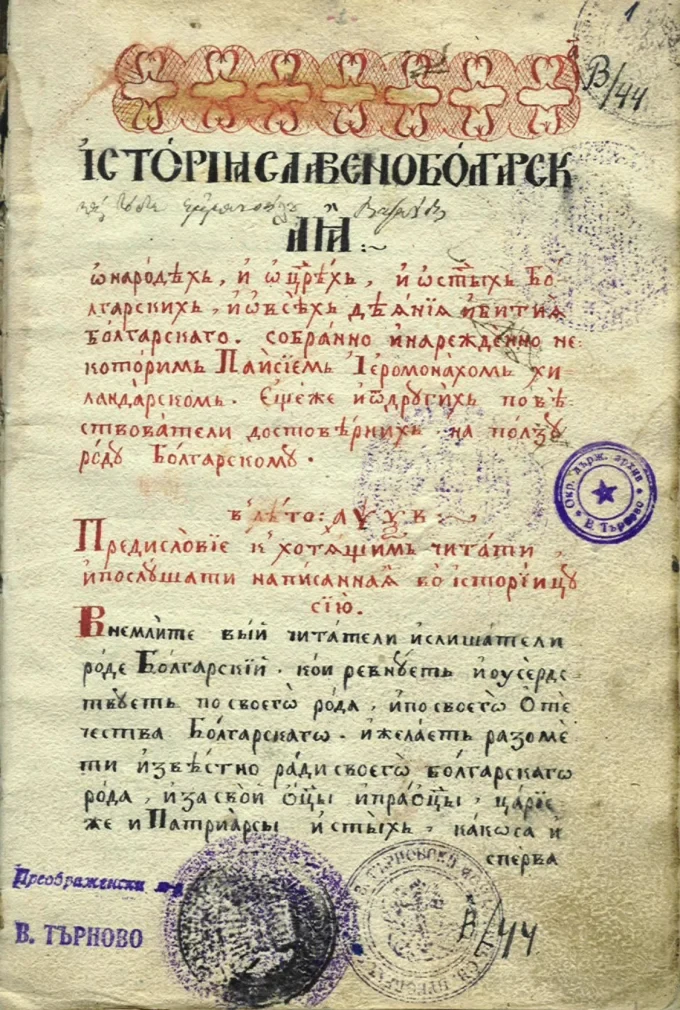 1
В/44
И҆СТО́РІꙖ СЛАВЕНОБО́ЛГАРСК
АꙖ:~
ѡ҆ наро́дѣхь, и҆ ѡ҆ цр҃ѣхь, и҆ ѡ҆ ст҃ыхь Бо
лгарскихь, и҆ ѡ҆ всѣ́хь дѣѧ́нїѧ и҆ битиѧ̀
бо́лгарскаго. собра́нно и҆ нареждено не:
которимь Паи҆сїемь І҆еромона́хомь хи
ланда́рскомь. Е҆щеже и҆ ѿ дрꙋги́хь повѣ:
ствова́тели достовѣ́рнихь. на по́лзꙋ
ро́дꙋ Бо́лгарскомꙋ.
в лѣ́то: ҂АѰѮВ~
Предисло́вїе к хотѧ́щимь чита́ти,
и҆ послꙋ́шати написаннаѧ во и҆сторїйцꙋ
сїю̀.
Внемли́те вый чита́тели и҆ слишатели
ро́де Бо́лгарскїй. кои ревнꙋеть и҆ оусердс
твꙋеть по своегѡ̀ ро́да, и҆ по своегѡ̀ Ѻ҆те
чества Бо́лгарскагѡ. и҆ желаеть разоме
ти и҆звѣстно ра́ди своегѡ̀ болгарскагѡ
ро́да, и҆ за свои ѻ҆тцы̀ и҆ праѻ҆тцы, ца́рїе
же и Патриарсы и҆ ст҃ыхь, ка́кѡ са и҆
сперва
Окр. държ. архив
В. Търново
Преображенски м-р
В. ТЪРНОВО
В/44